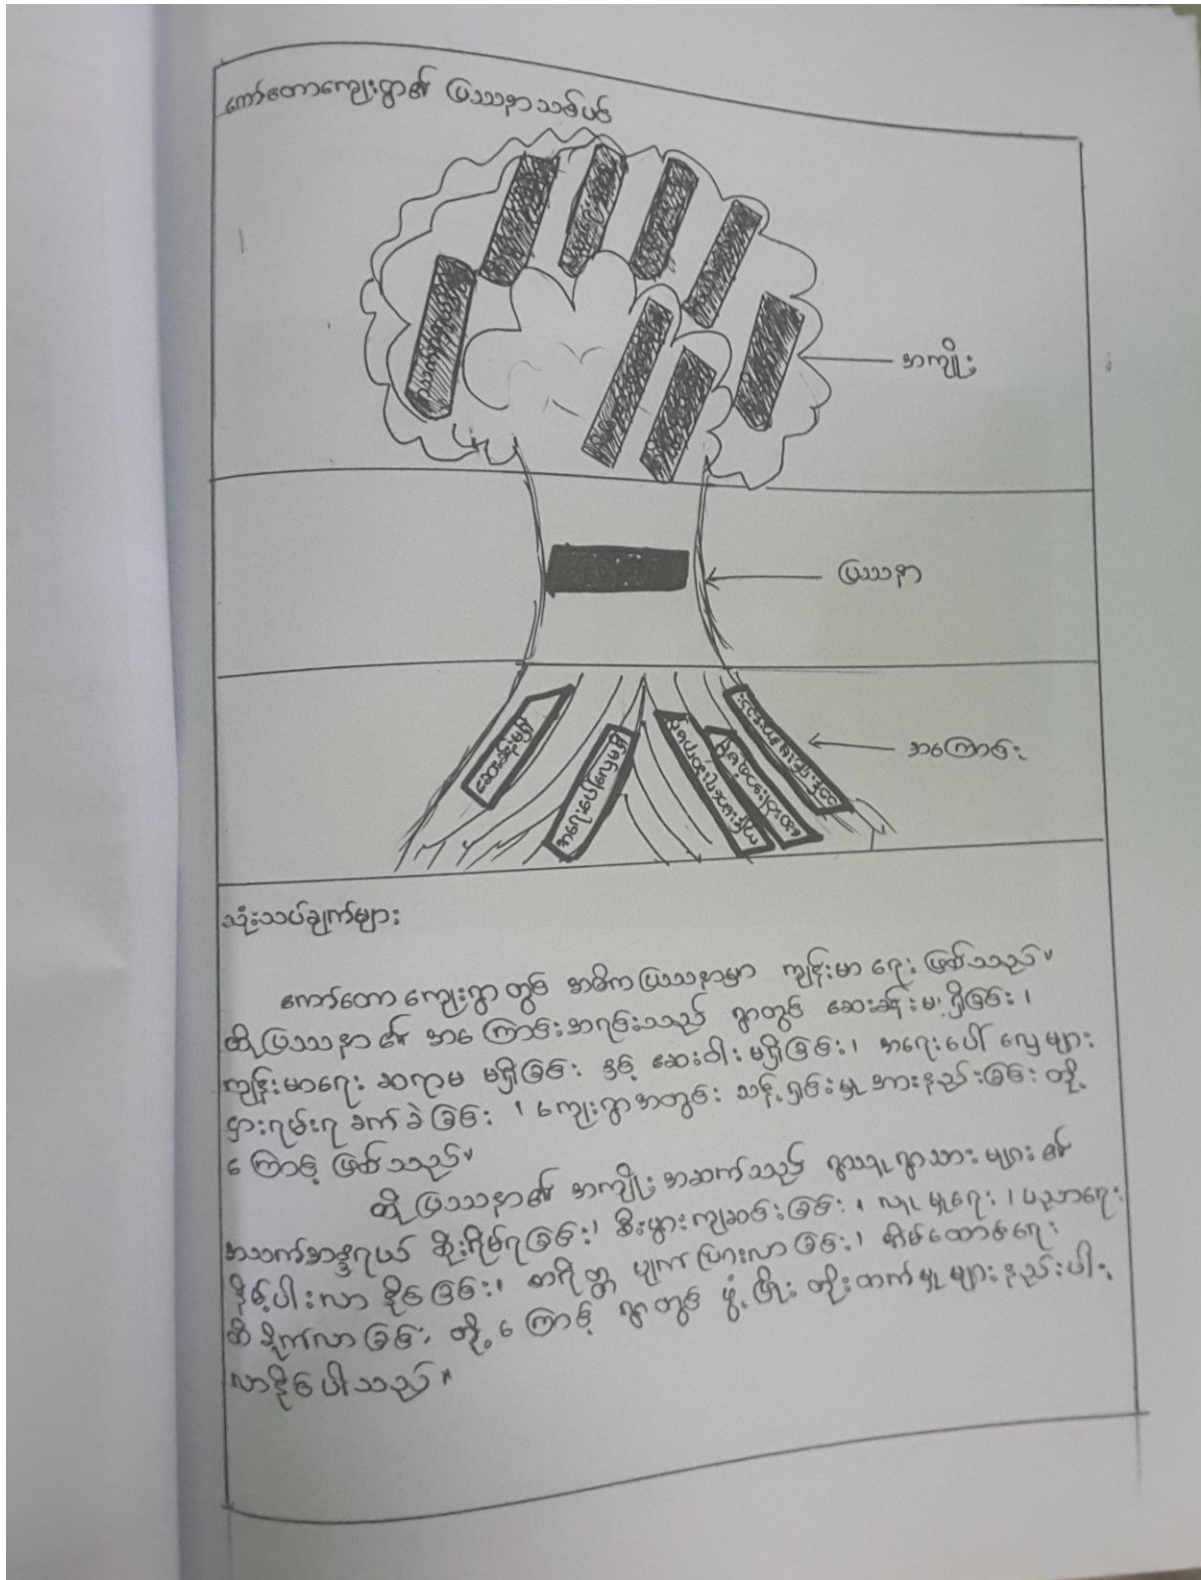 ကော်တောကျေးရွာ၏ ပြဿနာသစ်ပင်
အကျိုး
ပြဿနာ
ဆေးခန်းမရှိ
အရေးပေါ်လှေမရှိ
အကြောင်း
သုံးသပ်ချက်များ
ကော်တောကျေးရွာတွင် အဓိကပြဿနာမှာ ကျန်းမာရေး ဖြစ်သည်။
ထိုပြဿနာ၏ အကြောင်းအရင်းသည် ရွာတွင် ဆေးခန်းမရှိခြင်း၊
ကျန်းမာရေး ဆရာမ မရှိခြင်း နှင့် ဆေးဝါးမရှိခြင်း၊ အရေးပေါ် လှေများ
ငှားရမ်းရ ခက်ခဲခြင်း ၊ ကျေးရွာအတွင်း သန့်ရှင်းမှု အားနည်းခြင်း တို့
ကြောင့် ဖြစ်သည်။
ထိုပြဿနာ၏ အကျိုးအဆက်သည် ရွာသူရွာသားများ ၏
အသက်အန္တရာယ် စိုးရိမ်ရခြင်း၊ စီးပွားကျဆင်းခြင်း ၊ လူမှုရေး ၊ ပညာရေး
နိမ့်ပါးလာနိုင်ခြင်း၊ စာရိတ္တ ပျက်ပြားလာခြင်း၊ အိမ်ထောင်ရေး
ထိခိုက်လာခြင်း တို့ကြောင့် ရွာတွင် ဖွံ့ဖြိုး တိုးတက်မှုများ နည်းပါး
လာနိုင်ပါသည်။